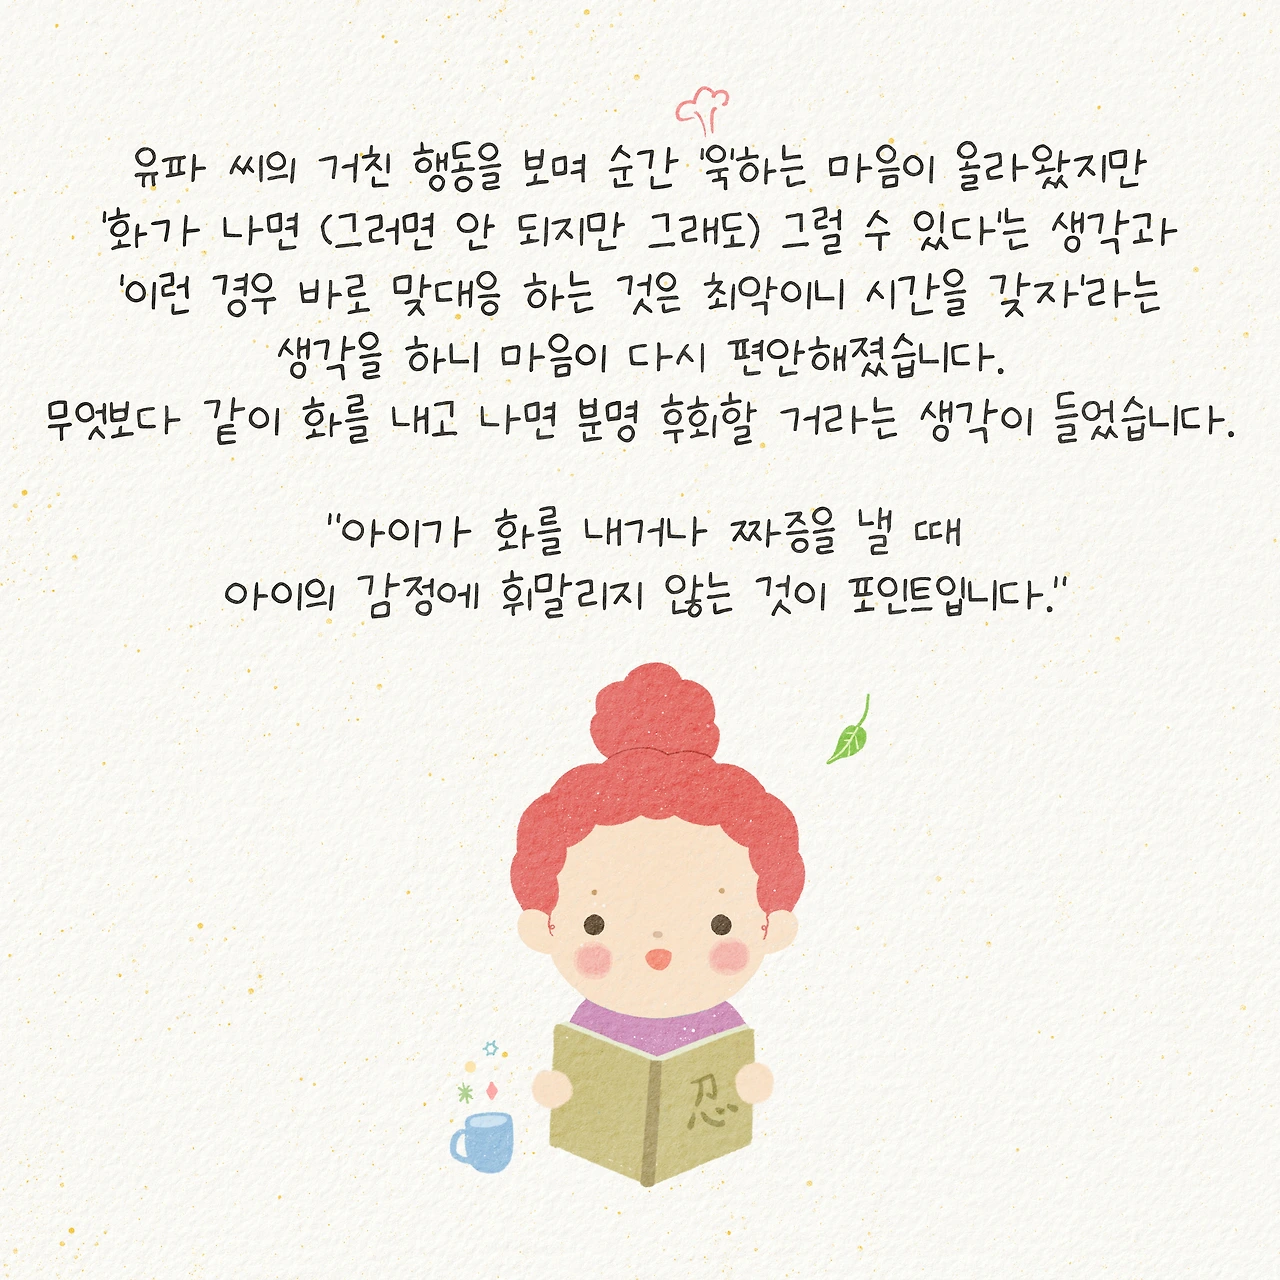 유파 씨의 거친 행동을 보며 순간 '욱'하는 마음이 올라왔지만
'화가 나면 (그러면 안 되지만 그래도) 그럴 수 있다'는 생각과
'이런 경우 바로 맞대응 하는 것은 최악이니 시간을 갖자'라는
생각을 하니 마음이 다시 편안해졌습니다.
무엇보다 같이 화를 내고 나면 분명 후회할 거라는 생각이 들었습니다.
"아이가 화를 내거나 짜증을 낼 때
아이의 감정에 휘말리지 않는 것이 포인트입니다."
忍